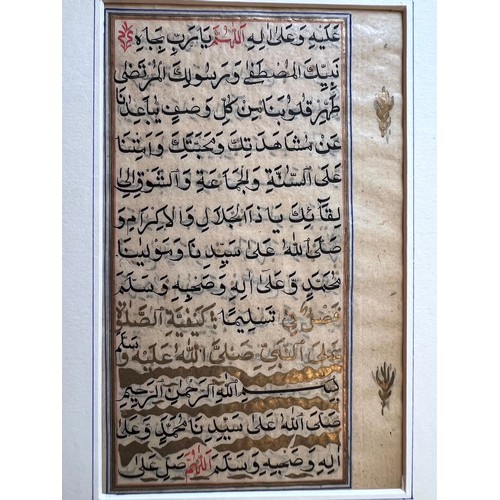 عَلَيْهِ وَعَلَىٰ اٰلِهِ اَللّٰهُمَّ يَا رَبِّ بِجَاهِ
نَبِيِّكَ الْمُصْطَفٰى وَرَسُولِكَ الْمُرْتَضٰى
طَهِّرْ قُلُوبَنَا مِنْ كُلِّ وَصْفٍ يُبَاعِدُنَا
عَنْ مُشَاهَدَتِكَ وَمَحَبَّتِكَ وَاَمِتْنَا
عَلَى السُّنَّةِ وَالْجَمَاعَةِ وَالشَّوْقِ اِلٰى
لِقَآئِكَ يَا ذَا الْجَلَالِ وَالْاِكْرَامِ وَ
صَلَّى اللهُ عَلٰى سَيِّدِنَا وَمَوْلَيْنَا
مُحَمَّدٍ وَعَلٰى اٰلِهِ وَصَحْبِهِ وَسَلَّمَ
تَسْلِيمًا فَصْلٌ فِى كَيْفِيَّةِ الصَّلَاةِ
عَلَى النَّبِيِّ صَلَّى اللهُ عَلَيْهِ وَسَلَّمَ
بِسْمِ اللهِ الرَّحْمٰنِ الرَّحِيمِ
صَلَّى اللهُ عَلٰى سَيِّدِنَا مُحَمَّدٍ وَعَلٰى
اٰلِهِ وَصَحْبِهِ وَسَلَّمَ اَللّٰهُمَّ صَلِّ عَلٰى